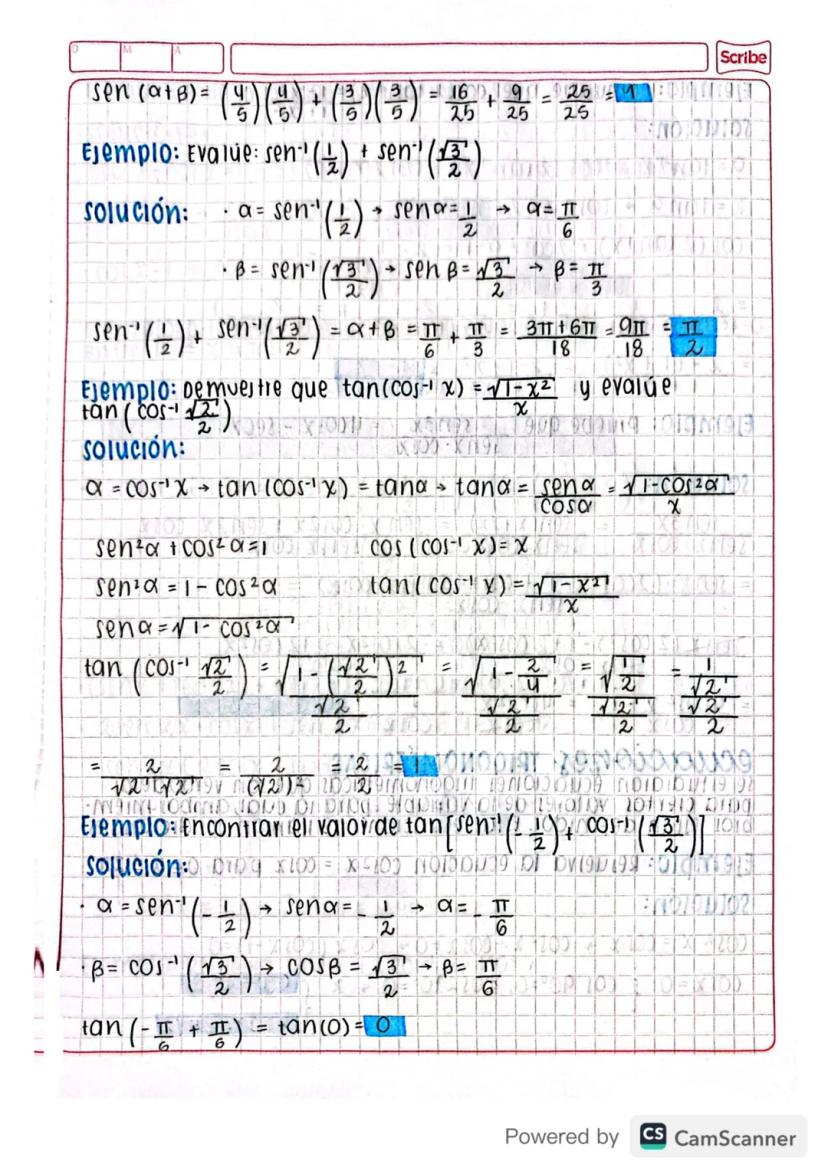 D M A Scribe
sen (α+β) = (4/5)(4/5) + (3/5)(3/5) = 16/25 + 9/25 = 25/25 = 1
Ejemplo: Evalúe: sen⁻¹(1/2) + sen⁻¹(√3/2)
Solución: · α = sen⁻¹(1/2) → sen α = 1/2 → α = π/6
· β = sen⁻¹(√3/2) → sen β = √3/2 → β = π/3
sen⁻¹(1/2) + sen⁻¹(√3/2) = α + β = π/6 + π/3 = 3π+6π/18 = 9π/18 = π/2
Ejemplo: Demuestre que tan(cos⁻¹ x) = √1-x²/x y evalúe
tan(cos⁻¹ √2/2)
Solución:
α = cos⁻¹ x → tan (cos⁻¹ x) = tan α → tan α = sen α/cos α = √1-cos²α/x
sen²α + cos²α = 1 cos (cos⁻¹ x) = x
sen²α = 1 - cos²α tan(cos⁻¹ x) = √1-x²/x
sen α = √1-cos²α
tan (cos⁻¹ √2/2) = √1-(√2/2)²/√2/2 = √1-2/4/√2/2 = √1/2/√2/2 = 1/√2/√2/2
= 2/√2 √2 = 2/(√2)² = 2/2 = 1
Ejemplo: Encontrar el valor de tan[sen⁻¹(-1/2) + cos⁻¹(√3/2)]
Solución:
· α = sen⁻¹(-1/2) → sen α = -1/2 → α = -π/6
· β = cos⁻¹(√3/2) → cos β = √3/2 → β = π/6
tan(-π/6 + π/6) = tan(0) = 0
Powered by CS CamScanner